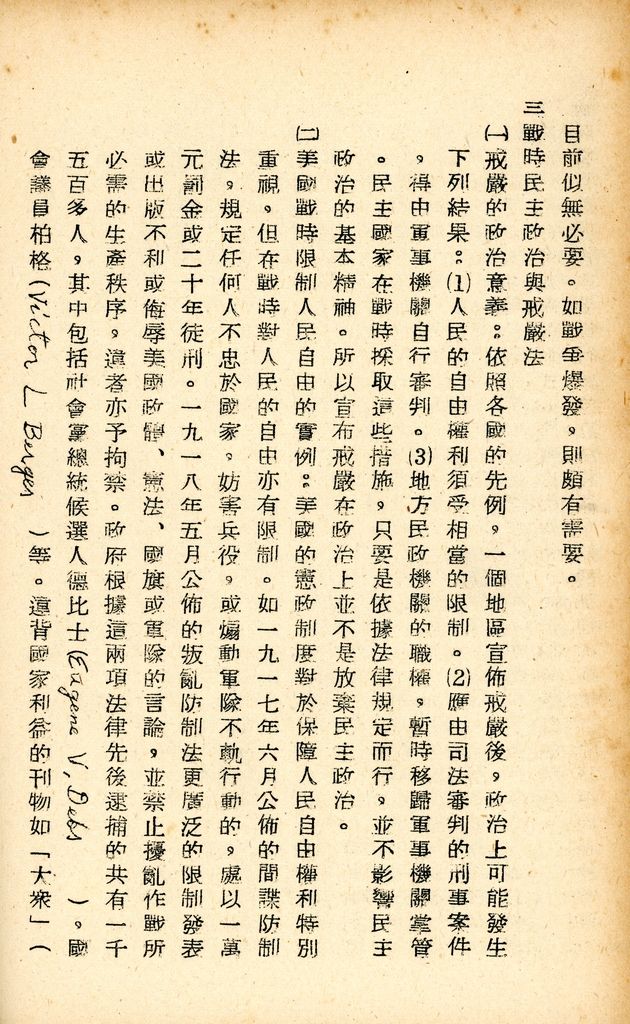 目前似無必要。如戰爭爆發，則頗有需要。
三 戰時民主政治與戒嚴法
㈠戒嚴的政治意義：依照各國的先例，一個地區宣佈戒嚴後，政治上可能發生
下列結果：(1)人民的自由權利須受相當的限制。(2)應由司法審判的刑事案件
，得由軍事機關自行審判。(3)地方民政機關的職權，暫時移歸軍事機關掌管
。民主國家在戰時採取這些措施，只要是依據法律規定而行，並不影響民主
政治的基本精神。所以宣布戒嚴在政治上並不是放棄民主政治。
㈡美國戰時限制人民自由的實例：美國的憲政制度對於保障人民自由權利特別
重視，但在戰時對人民的自由亦有限制。如一九一七年六月公佈的間諜防制
法，規定任何人不忠於國家，妨害兵役，或煽動軍隊不軌行動的，處以一萬
元罰金或二十年徒刑。一九一八年五月公佈的叛亂防制法更廣泛的限制發表
或出版不利或侮辱美國政體、憲法、國旗或軍隊的言論，並禁止擾亂作戰所
必需的生產秩序，違者亦予拘禁。政府根據這兩項法律先後逮捕的共有一千
五百多人，其中包括社會黨總統候選人德比士(Eugene V. Debs)。國
會議員柏格(Victor L Berger)等。違背國家利益的刊物如「大衆」(